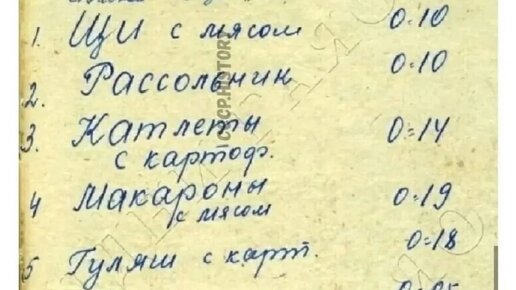 1. Щи с мясом 0=10
2. Рассольник 0=10
3. Катлеты 0=14
с картоф.
4 Макароны 0=19
с мясом
5 Гуляш с карт. 0=18
СССР.HISTORY